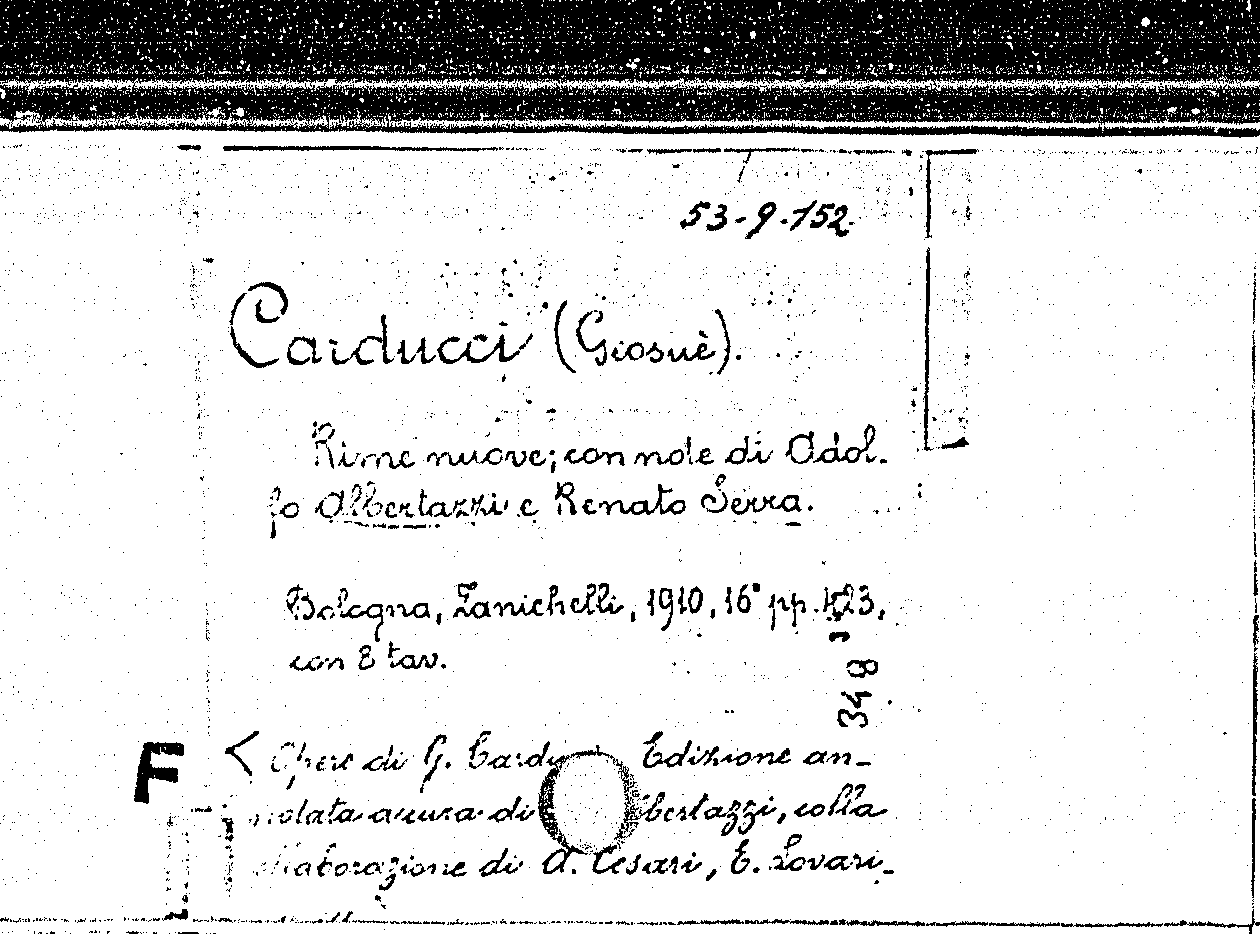 53-9-152
Carducci (Giosuè).
Rime nuove; con note di Adol-
fo Albertazzi e Renato Serra.
Bologna, Zanichelli, 1910, 16° pp. 423,
con 8 tav.
348
F
< Opere di G. Cardu Edizione an-
notata a cura di bertazzi, colla
collaborazione di A. Cesari, E. Lovari-